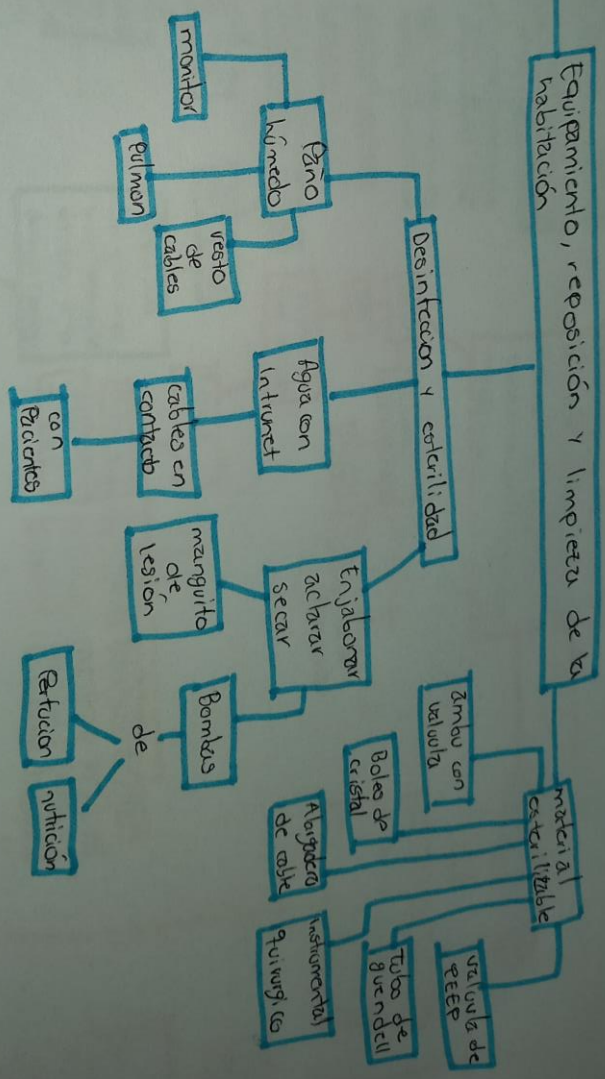 Equipamiento, reposición y limpieza de la
habitación
Desinfeccion y esterilidad
Paño
húmedo
monitor
pulmon
resto
de
cables
Agua con
Intrunet
cables en
contacto
con
Pacientes
Enjabonar
aclarar
secar
manguito
de
Lesión
Bombas
de
Perfucion
nutrición
material
esterilizable
ambu con
valvula
Boleo de
cristal
Alargadera
de cable
instrumental
quirurgico
Tubo de
guendell
valvula de
PEEP